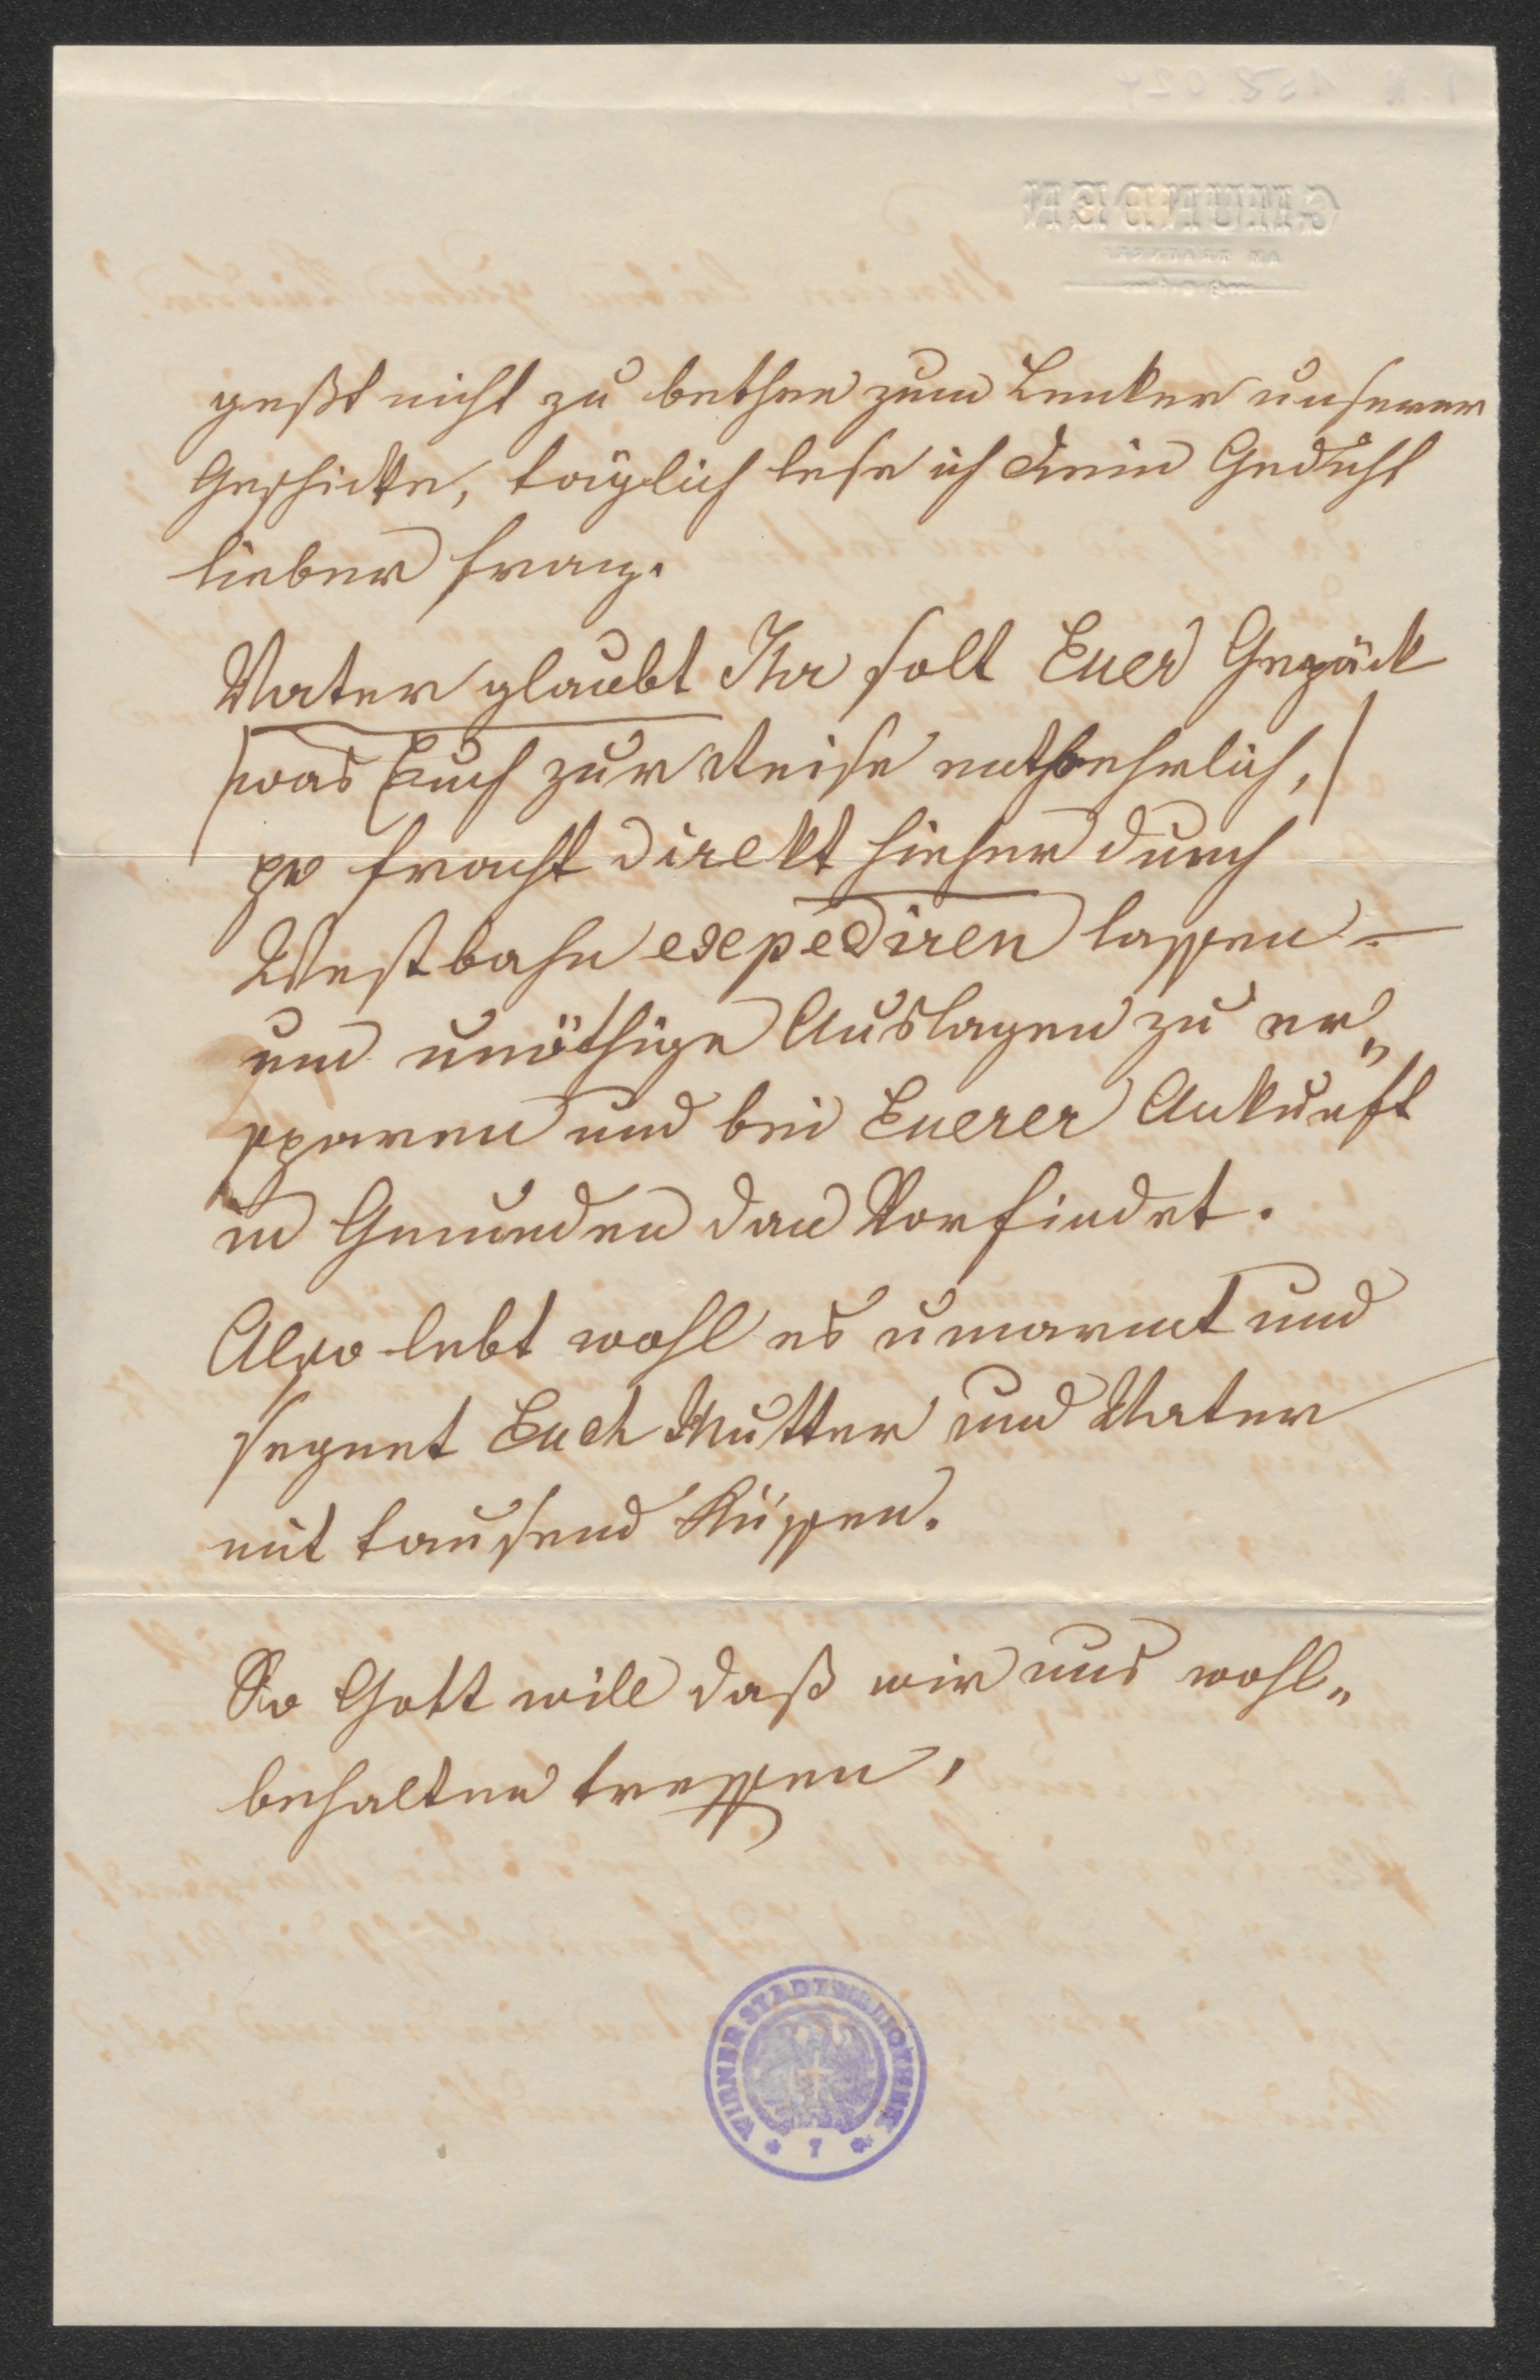 GMUNDEN
AM TRAUNSEE
geßt nicht zu bethen zum Lenker unserer
Geschicke, täglich lese ich Dein Gedicht
lieber Franz.
Vater glaubt Ihr solt Euer Gepäck
(was Euch zur Reise entbehrlich,)
pr Fracht direkt hieher durch
Westbahn expediren lassen –
um unöthige Auslagen zu er„
sparen und bei Euerer Ankunft
in Gmunden dan Vorfindet.
Also lebt wohl es umarmt und
segnet Euch Mutter und Vater
mit tausend Küssen.
So Gott will daß wir uns wohl„
behalten treffen,
WIENER STADTBIBLIOTHEK
* 7 *